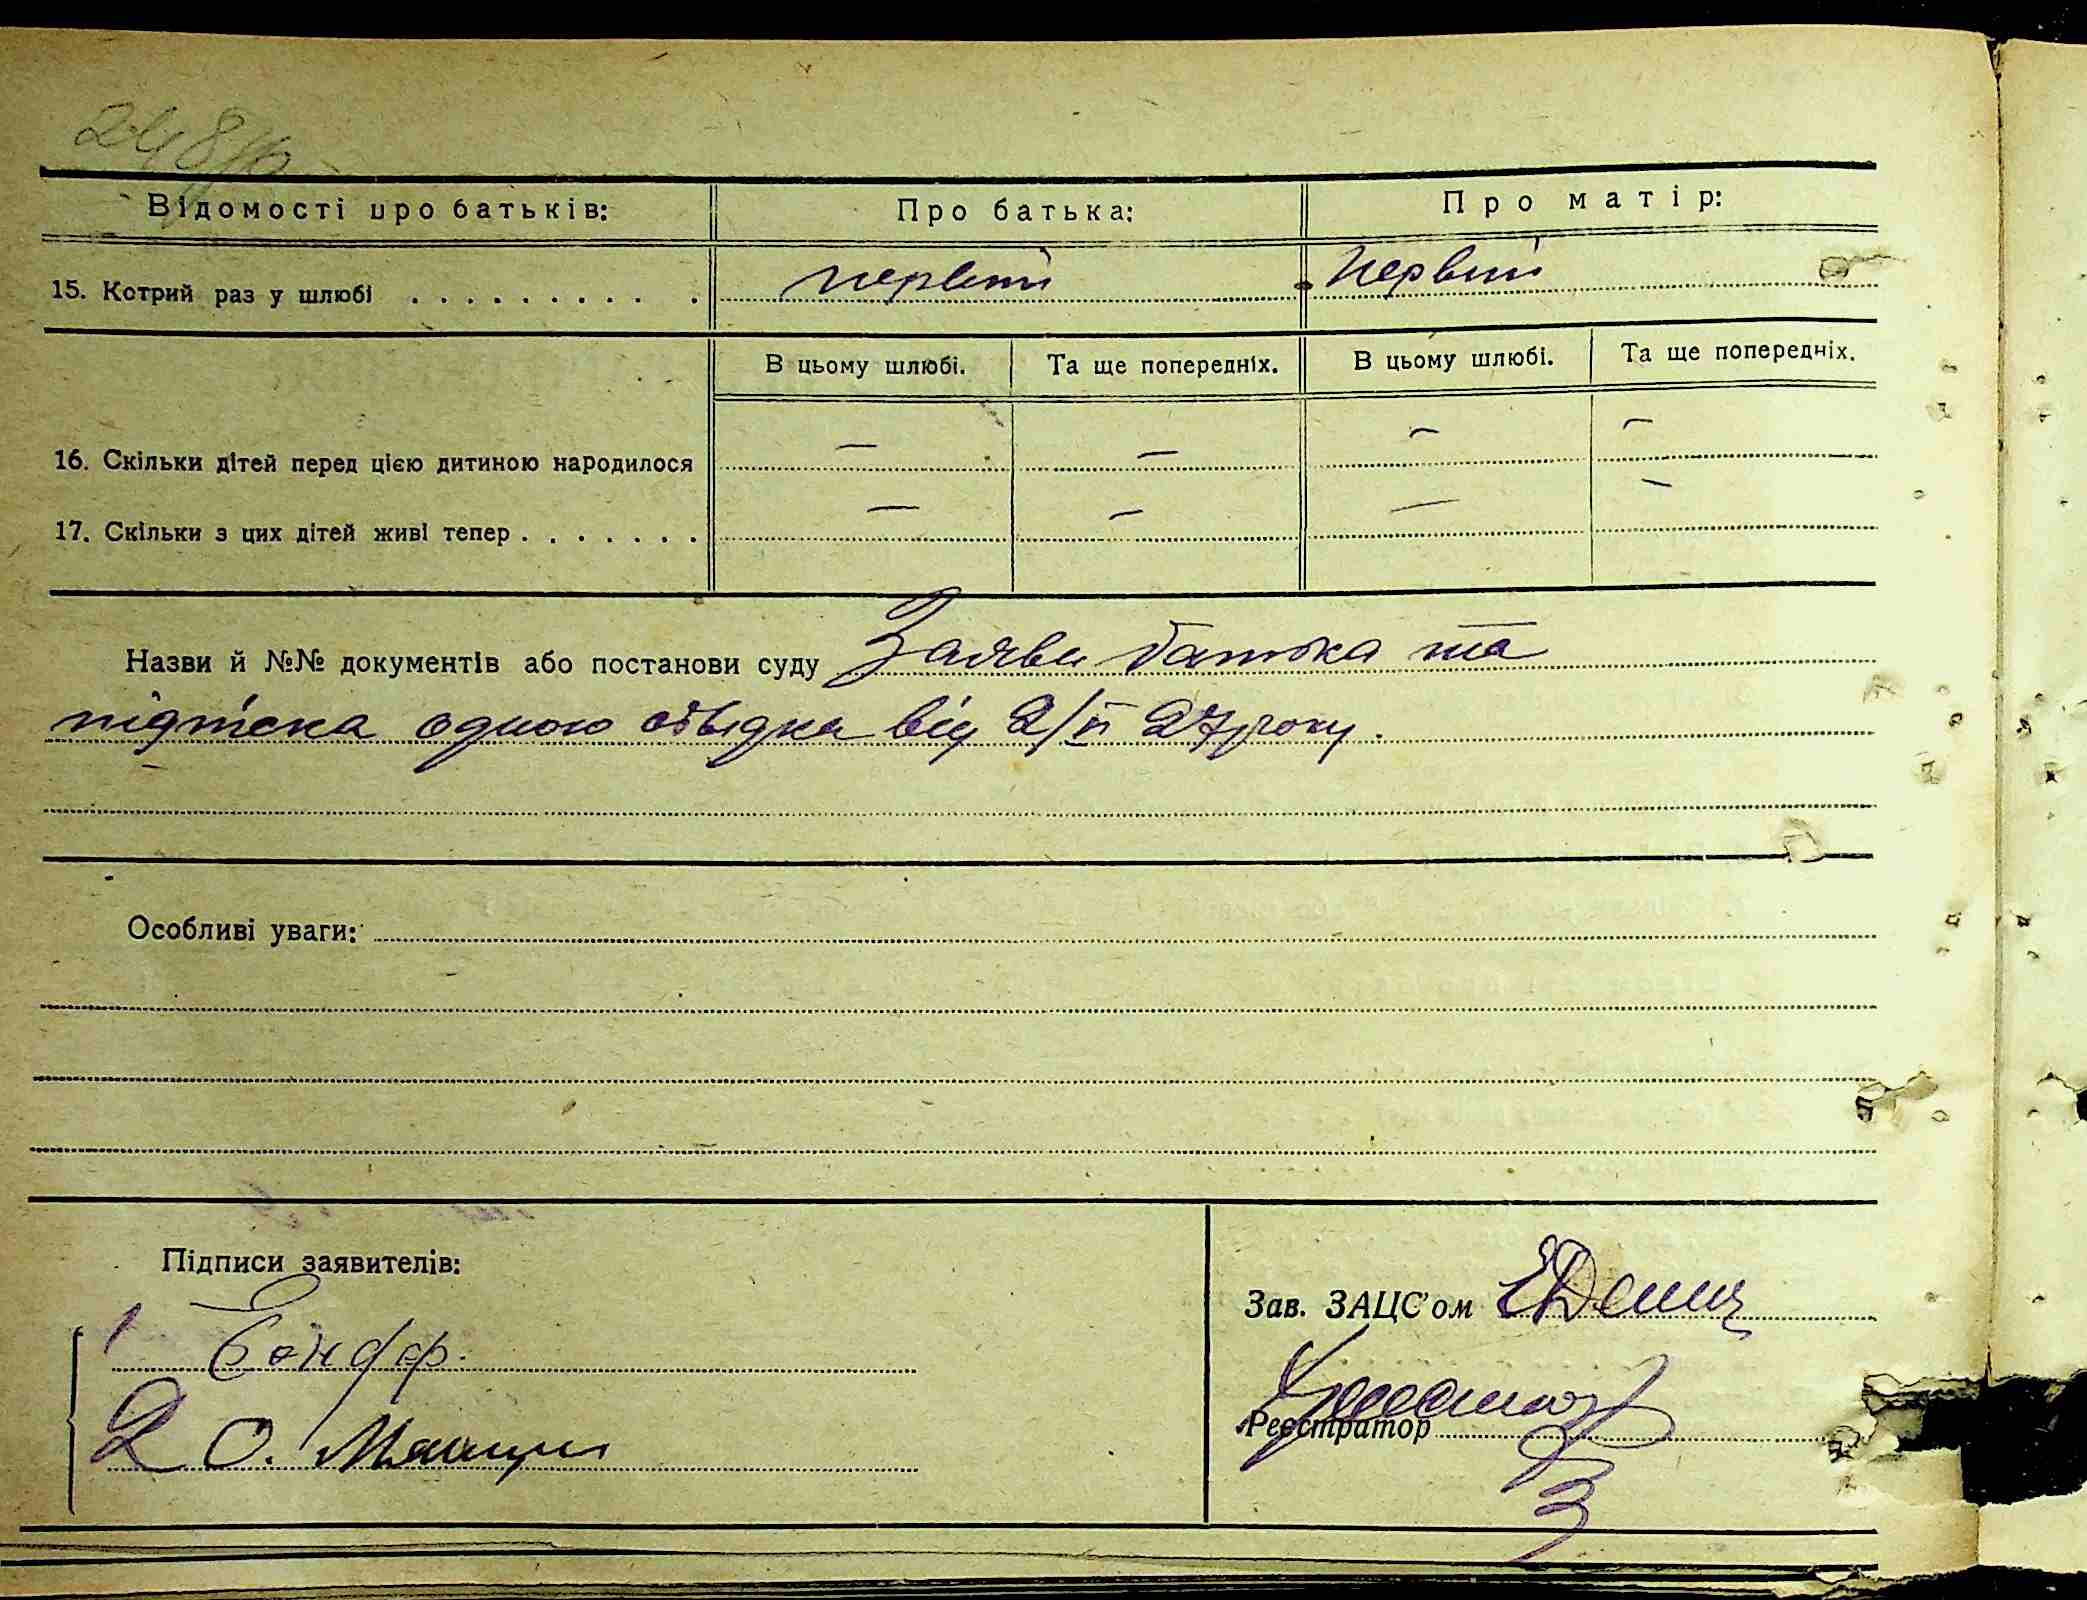 Відомості про батьків: Про батька: Про матір:
15. Котрий раз у шлюбі . . . . . . . . . . первий первий
В цьому шлюбі. Та ще попередніх. В цьому шлюбі. Та ще попередніх.
16. Скільки дітей перед цією дитиною народилося — — — —
17. Скільки з цих дітей живі тепер . . . . . . . — — — —
Назви й №№ документів або постанови суду Заява батька та
підписка одного свідка від 2/VI 27 року.
Особливі уваги:
Підписи заявителів:
1
Зав. ЗАЦС'ом
2 О.
Реєстратор